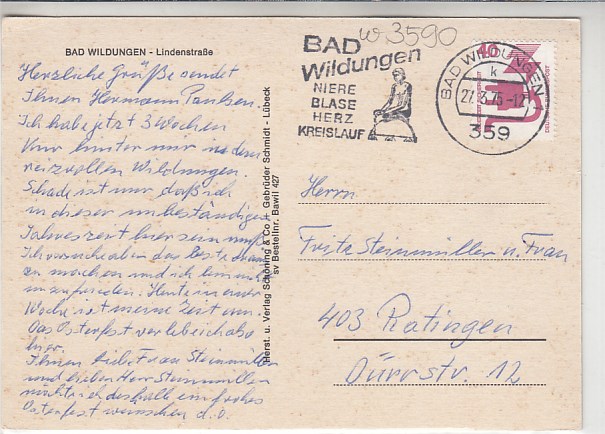 BAD WILDUNGEN - Lindenstraße
Herzliche Grüße sendet
Ihnen Hermann Paulsen.
Ich habe jetzt 3 Wochen
Kur hinter mir in dem
reizvollen Wildungen.
Schade ist nur daß ich
in dieser unbeständigen
Jahreszeit hier sein muß.
Ich versuche aber das beste
zu machen und ich bin nicht
unzufrieden. Heute in einer
Woche ist meine Zeit um.
Das Osterfest verlebe ich also
hier.
Ihnen liebe Frau Steinmüller
und lieber Herr Steinmüller
möchte ich deshalb ein frohes
Osterfest wünschen d. o.
Herst. u. Verlag Schöning & Co + Gebrüder Schmidt - Lübeck
sv Bestellnr. Bawil 427
w 3590
BAD
Wildungen
NIERE
BLASE
HERZ
KREISLAUF
BAD WILDUNGEN
k
27.3.75-17
359
40
DEUTSCHE BUNDESPOST
Herrn
Fritz Steinmüller u. Frau
403 Ratingen
Dürrstr. 12